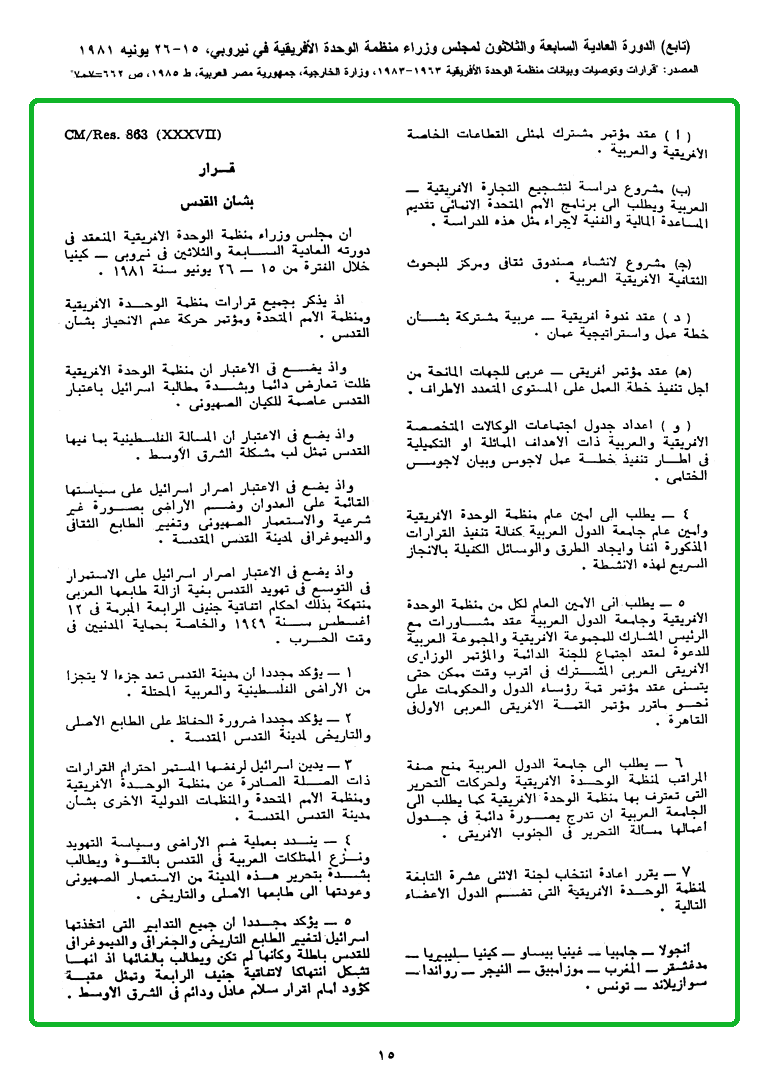 (تابع) الدورة العادية السابعة والثلاثون لمجلس وزراء منظمة الوحدة الأفريقية في نيروبي، ١٥-٢٦ يونيه ١٩٨١
المصدر: "قرارات وتوصيات وبيانات منظمة الوحدة الأفريقية ١٩٦٣-١٩٨٣، وزارة الخارجية، جمهورية مصر العربية، ط ١٩٨٥، ص
( أ ) عقد مؤتمر مشترك لمثلى القطاعات الخاصة
الافريقية والعربية .
(ب) مشروع دراسة لتشجيع التجارة الافريقية —
العربية ويطلب الى برنامج الأمم المتحدة الانمائى تقديم
المساعدة المالية والفنية لاجراء مثل هذه الدراسة .
(ج) مشروع لانشاء صندوق ثقافى ومركز للبحوث
الثقافية الافريقية العربية .
( د ) عقد ندوة افريقية — عربية مشتركة بشان
خطة عمل واستراتيجية عمان .
(هـ) عقد مؤتمر افريقى — عربى للجهات المانحة من
اجل تنفيذ خطة العمل على المستوى المتعدد الأطراف .
( و ) اعداد جدول اجتماعات الوكالات المتخصصة
الأفريقية والعربية ذات الاهداف المماثلة او التكميلية
فى اطار تنفيذ خطة عمل لاجوس وبيان لاجوس
الختامى .
٤ — يطلب الى امين عام منظمة الوحدة الأفريقية
وامين عام جامعة الدول العربية كفالة تنفيذ القرارات
المذكورة انفا وايجاد الطرق والوسائل الكفيلة بالانجاز
السريع لهذه الانشطة .
٥ — يطلب الى الامين العام لكل من منظمة الوحدة
الافريقية وجامعة الدول العربية عقد مشاورات مع
الرئيس المشارك للمجموعة الافريقية والمجموعة العربية
للدعوة لعقد اجتماع للجنة الدائمة والمؤتمر الوزارى
الأفريقى العربى المشترك فى اقرب وقت ممكن حتى
يتسنى عقد مؤتمر قمة رؤساء الدول والحكومات على
نحو ماقرر مؤتمر القمة الافريقى العربى الاول فى
القاهرة .
٦ — يطلب الى جامعة الدول العربية منح صفة
المراقب لمنظمة الوحدة الافريقية ولحركات التحرير
التى تعترف بها منظمة الوحدة الافريقية كما يطلب الى
الجامعة العربية ان تدرج بصورة دائمة فى جدول
اعمالها مسالة التحرير فى الجنوب الأفريقى .
٧ — يقرر اعادة انتخاب لجنة الاثنى عشرة التابعة
لمنظمة الوحدة الافريقية التى تضم الدول الأعضاء
التالية .
انجولا — جامبيا — غينيا بيساو — كينيا — ليبيريا —
مدغشقر — المغرب — موزامبيق — النيجر — رواندا —
سوازيلاند — تونس .
CM/Res. 863 (XXXVII)
قـرار
بشان القدس
ان مجلس وزراء منظمة الوحدة الافريقية المنعقد فى
دورته العادية السابعة والثلاثين فى نيروبى — كينيا
خلال الفترة من ١٥ — ٢٦ يونيو سنة ١٩٨١ .
اذ يذكر بجميع قرارات منظمة الوحدة الافريقية
ومنظمة الأمم المتحدة ومؤتمر حركة عدم الانحياز بشان
القدس .
واذ يضع فى الاعتبار ان منظمة الوحدة الافريقية
ظلت تعارض دائما وبشدة مطالبة اسرائيل باعتبار
القدس عاصمة للكيان الصهيونى .
واذ يضع فى الاعتبار ان المسالة الفلسطينية بما فيها
القدس تمثل لب مشكلة الشرق الأوسط .
واذ يضع فى الاعتبار اصرار اسرائيل على سياستها
القائمة على العدوان وضم الأراضى بصورة غير
شرعية والاستعمار الصهيونى وتغيير الطابع الثقافى
والديموغرافى لمدينة القدس المقدسة .
واذ يضع فى الاعتبار اصرار اسرائيل على الاستمرار
فى التوسع فى تهويد القدس بغية ازالة طابعها العربى
منتهكة بذلك احكام اتفاقية جنيف الرابعة المبرمة فى ١٢
اغسطس سنة ١٩٤٩ والخاصة بحماية المدنيين فى
وقت الحرب .
١ — يؤكد مجددا ان مدينة القدس تعد جزءا لا يتجزا
من الأراضى الفلسطينية والعربية المحتلة .
٢ — يؤكد مجددا ضرورة الحفاظ على الطابع الأصلى
والتاريخى لمدينة القدس المقدسة .
٣ — يدين اسرائيل لرفضها المستمر احترام القرارات
ذات الصلة الصادرة عن منظمة الوحدة الأفريقية
ومنظمة الأمم المتحدة والمنظمات الدولية الأخرى بشان
مدينة القدس المقدسة .
٤ — يندد بعملية ضم الأراضى وسياسة التهويد
ونزع الممتلكات العربية فى القدس بالقوة ويطالب
بشدة بتحرير هذه المدينة من الاستعمار الصهيونى
وعودتها الى طابعها الأصلى والتاريخى .
٥ — يؤكد مجددا ان جميع التدابير التى اتخذتها
اسرائيل لتغيير الطابع التاريخى والجغرافى والديموغرافى
للقدس باطلة وكانها لم تكن ويطالب بالغائها اذ انها
تشكل انتهاكا لاتفاقية جنيف الرابعة وتمثل عقبة
كؤود أمام اقرار سلام عادل ودائم فى الشرق الأوسط .
١٥